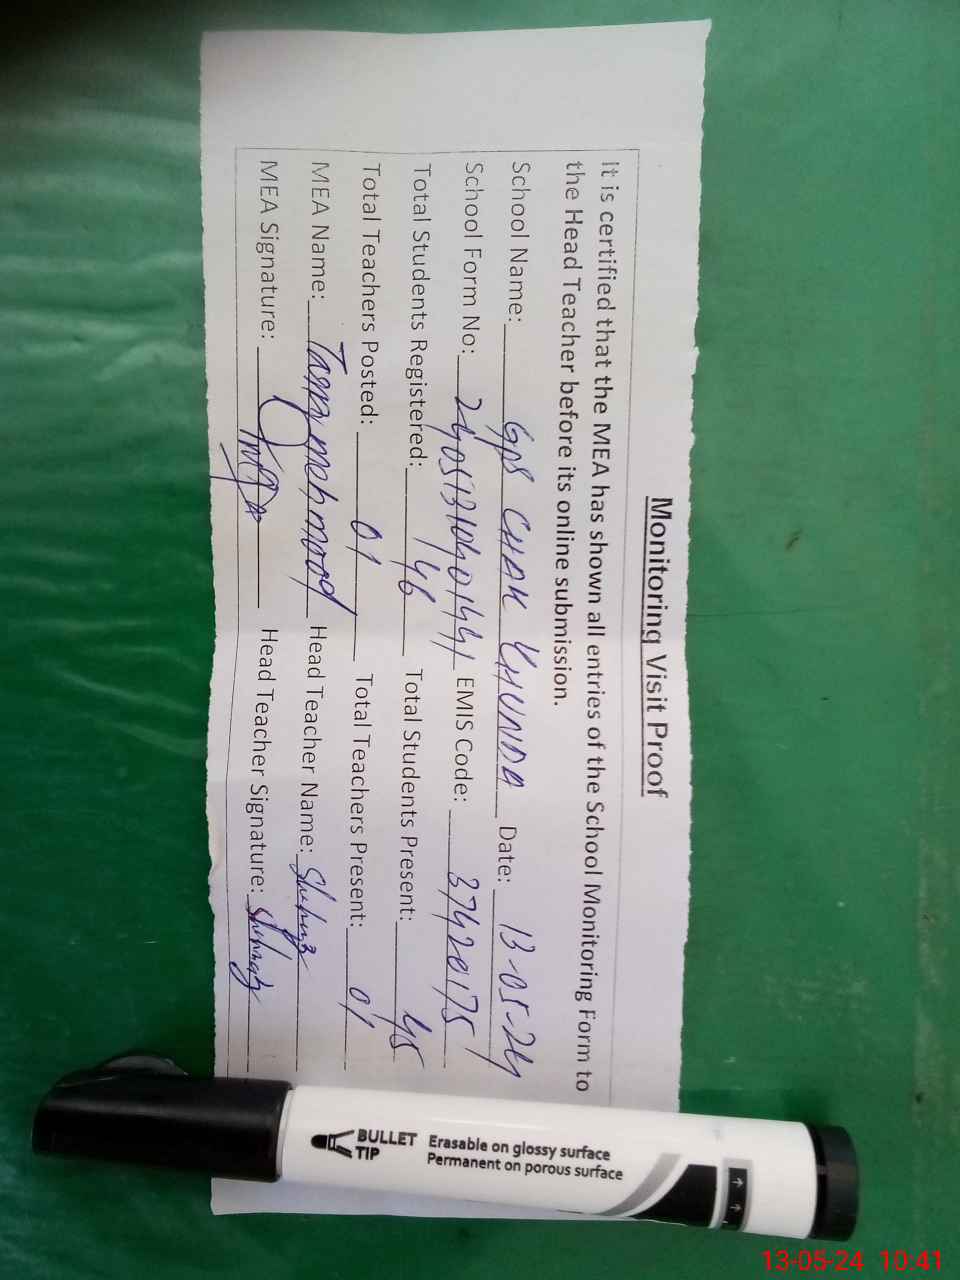 Monitoring Visit Proof
It is certified that the MEA has shown all entries of the School Monitoring Form to
the Head Teacher before its online submission.
School Name: GPS CHAK KHUNDA Date: 13-05-24
School Form No: EMIS Code: 37420175
Total Students Registered: 46 Total Students Present: 45
Total Teachers Posted: 01 Total Teachers Present: 01
MEA Name: mehmood Head Teacher Name:
MEA Signature: Head Teacher Signature:
BULLET TIP
Erasable on glossy surface
Permanent on porous surface
13-05-24 10:41